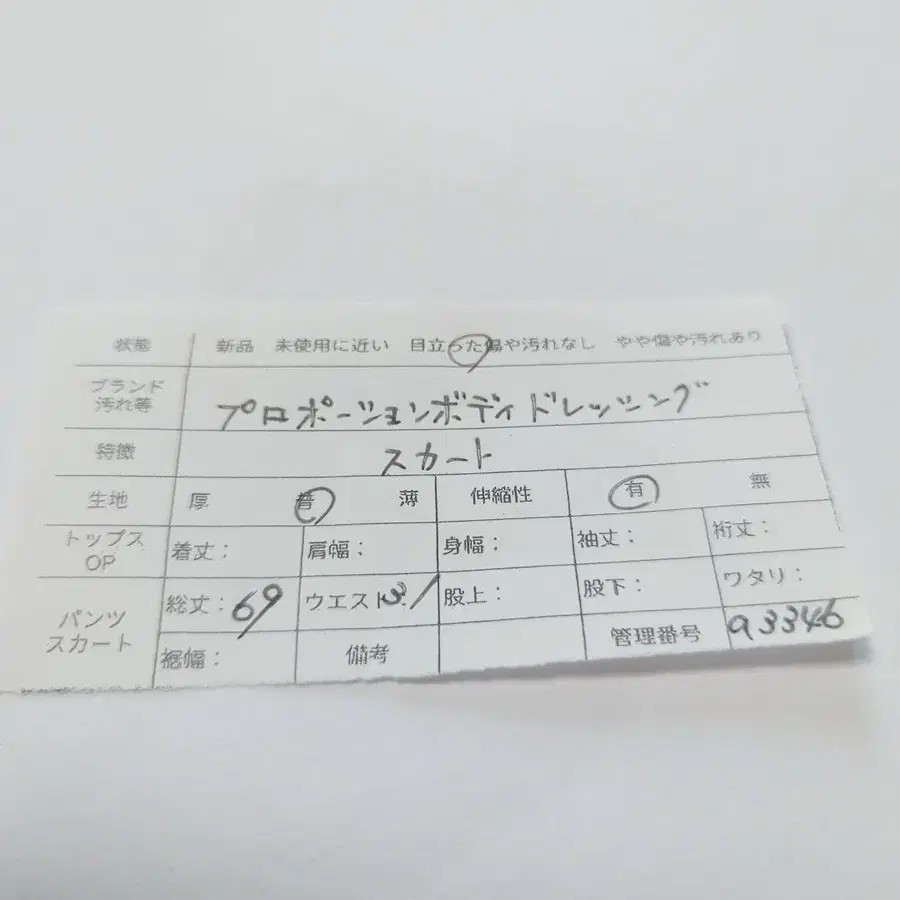 状態 新品 未使用に近い 目立った傷や汚れなし やや傷や汚れあり
ブランド
汚れ等 プロポーションボディドレッシング
特徴 スカート
生地 厚 普 薄 伸縮性 有 無
トップス
OP 着丈: 肩幅: 身幅: 袖丈: 裄丈:
パンツ
スカート 総丈:69 ウエスト:31 股上: 股下: ワタリ:
裾幅: 備考 管理番号 a3346